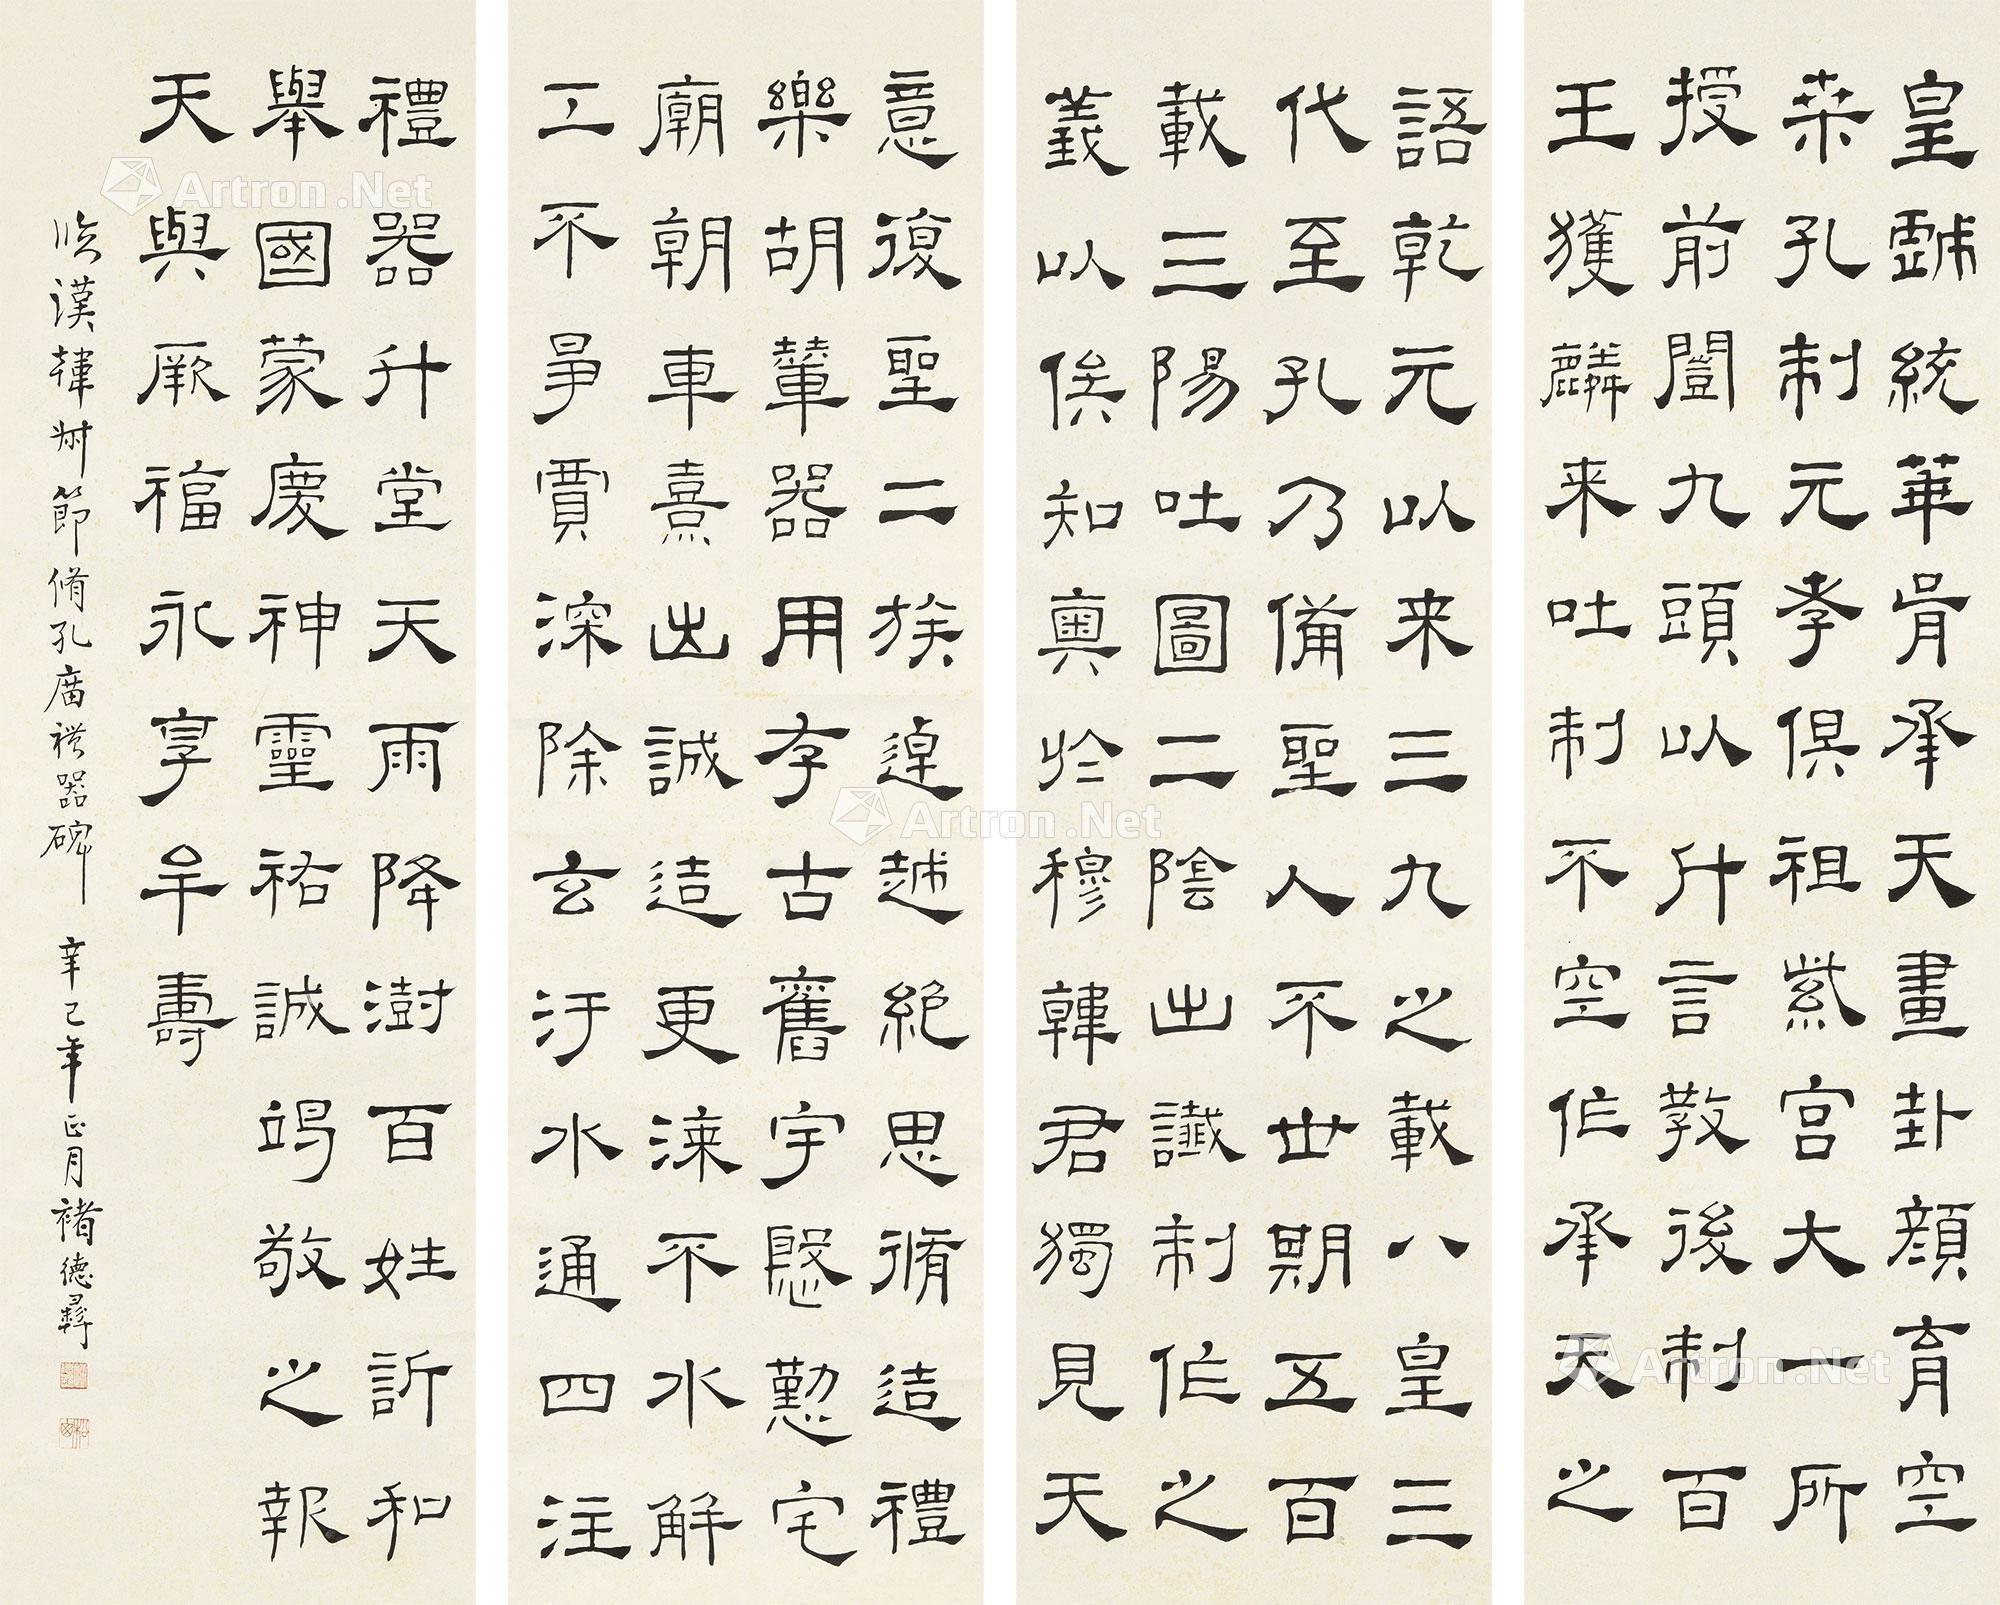 皇戲統華胥承天畫卦顏育空
桑孔制元孝俱祖紫宮大一所
授前闓九頭以什言教後制百
王獲麟来吐制不空作承天之
語乾元以来三九之載八皇三
代至孔乃備聖人不世期五百
載三陽吐圖二陰出讖制作之
義以俟知奧於穆韓君獨見天
意復聖二族逴越絕思脩造禮
樂胡輦器用存古舊宇慇懃宅
廟朝車熹出誠造更漆不水解
工不爭賈深除玄汙水通四注
禮器升堂天雨降澍百姓訢和
舉國蒙慶神靈祐誠竭敬之報
天與厥福永享牟壽
臨漢韓勑節脩孔廟禮器碑 辛巳年正月褚德彝
Artron.Net
Artron.Net
Artron.Net